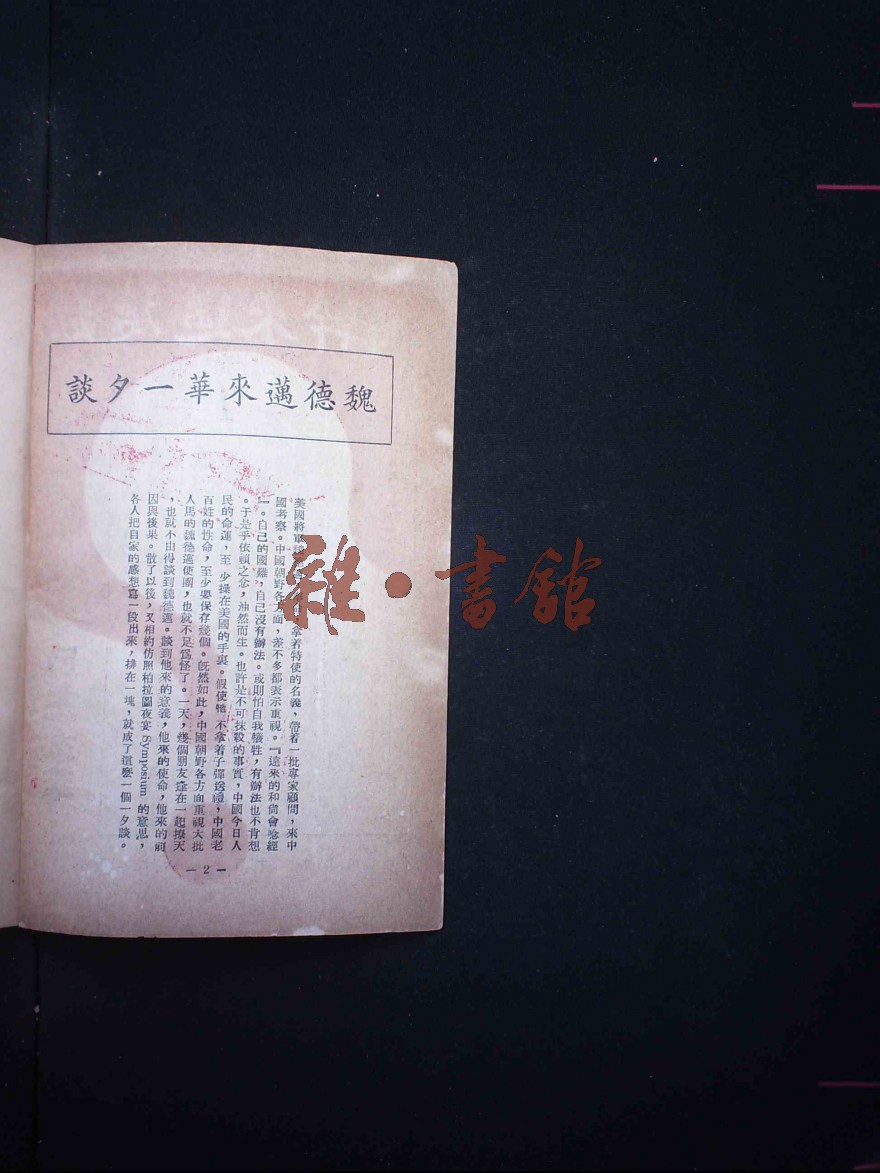 魏德邁來華一夕談
美國將軍魏德邁，拿着特使的名義，帶着一批專家顧問，來中
國考察。中國朝野各方面，差不多都表示重視。『遠來的和尚會唸經
』。自己的國難，自己沒有辦法。或則怕自我犧牲，有辦法也不肯想
。于是乎依賴之念，油然而生。也許是不可抹殺的事實，中國今日人
民的命運，至少操在美國的手裏。假使牠不拿着子彈送禮，中國老
百姓的性命，至少要保存幾個。旣然如此，中國朝野各方面重視大批
人馬的魏德邁使團，也就不足爲怪了。一天，幾個朋友逢在一起撩天
，也就不由得談到魏德邁。談到他來的意義，他來的使命，他來的前
因與後果。散了以後，又相約仿照柏拉圖夜宴 Symposium 的意思，
各人把自家的感想寫一段出來，排在一塊，就成了這麽一個一夕談。
— 2 —
雜·書館